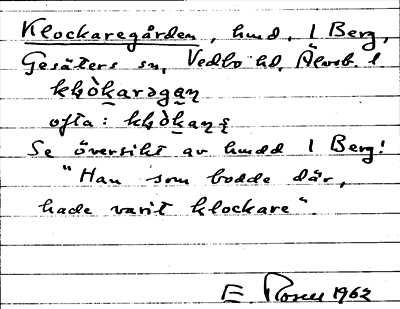 Klockaregården, hmd, 1 Berg,
Gesäters sn, Vedbo hd, Älvsb. l.
ofta:
Se översikt av hmdd 1 Berg!
"Han som bodde där,
hade varit klockare".
E. Rosen 1962